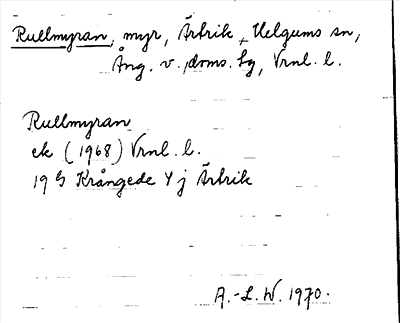 Rullmyran, myr, Ärtrik, Helgums sn,
Ång. v. doms. fg, Vrnl. l.
Rullmyran
ek (1968) Vrnl. l.
19 G Krångede 4 j Ärtrik
A.-L. W. 1970.